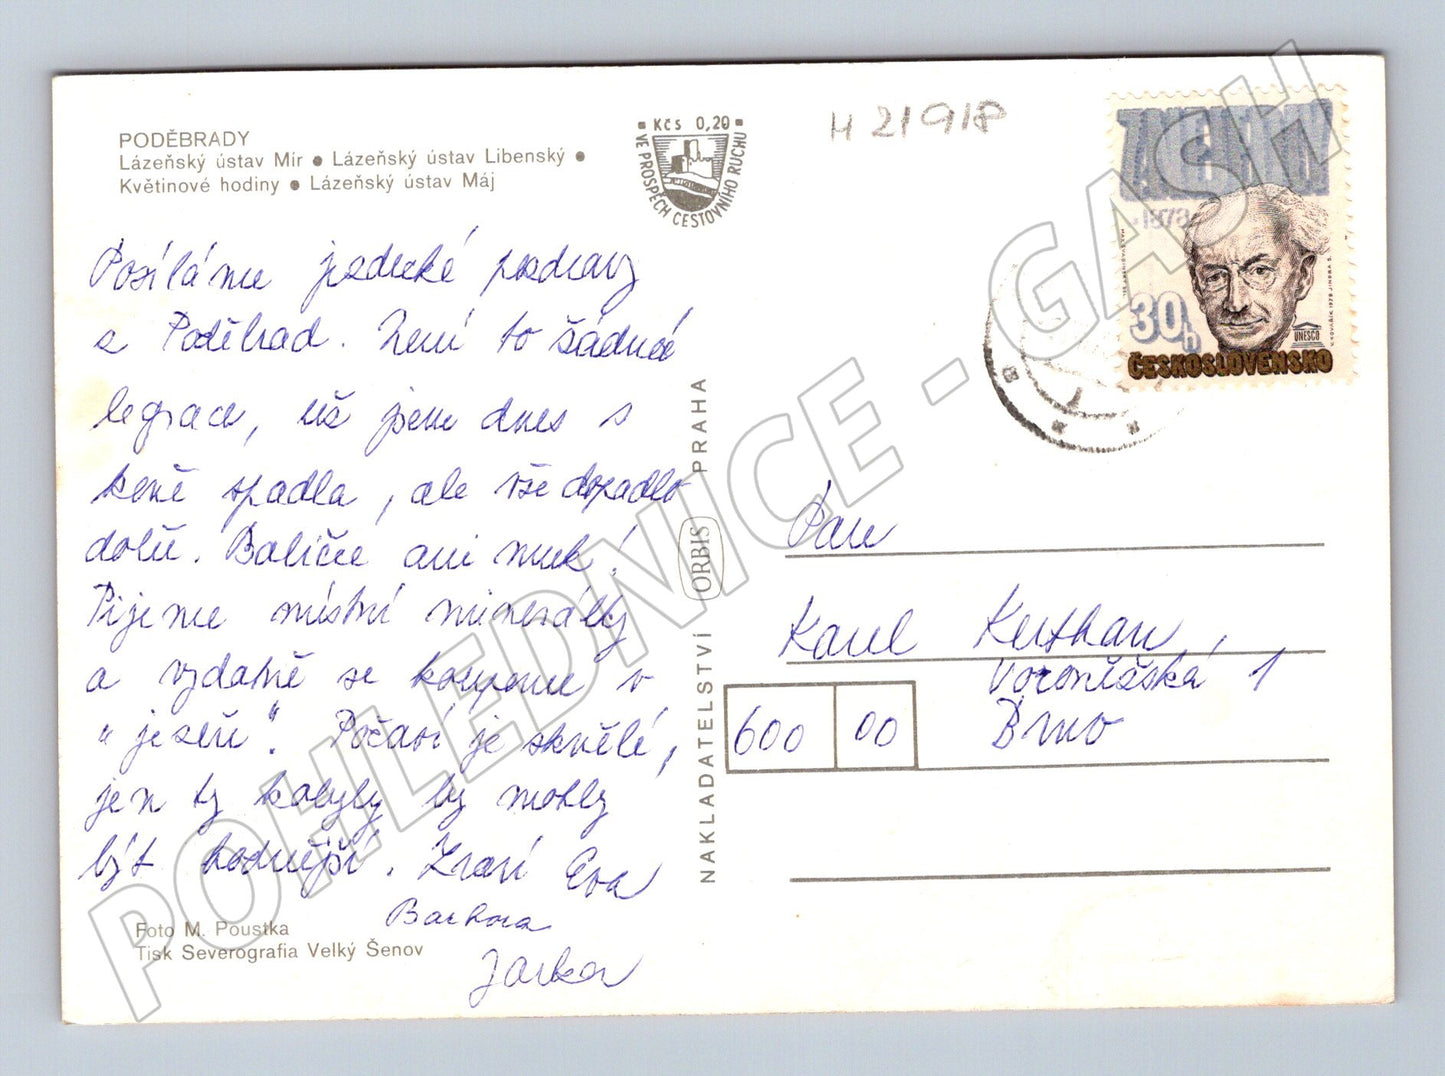 PODĚBRADY
Lázeňský ústav Mír • Lázeňský ústav Libenský •
Květinové hodiny • Lázeňský ústav Máj
Kčs 0,20
VE PROSPĚCH CESTOVNÍHO RUCHU
H 21918
Z. NEJEDLÝ
*1878
30h
UNESCO
ČESKOSLOVENSKO
Posíláme jezdecké pozdravy
z Poděbrad. Není to žádná
legrace, už jsem dnes s
koně spadla, ale vše dopadlo
dolů. Balíček ani muk!
Pijeme místní minerálky
a vydatně se koupeme v
"jezeru". Počasí je skvělé,
jen ty kobyly by mohly
být hodnější. Zdraví Eva
Barbora
Jarka
Foto M. Poustka
Tisk Severografia Velký Šenov
NAKLADATELSTVÍ ORBIS PRAHA
Pan
Karel Kerthan,
Voroněžská 1
600 00 Brno
POHLEDNICE - GASH